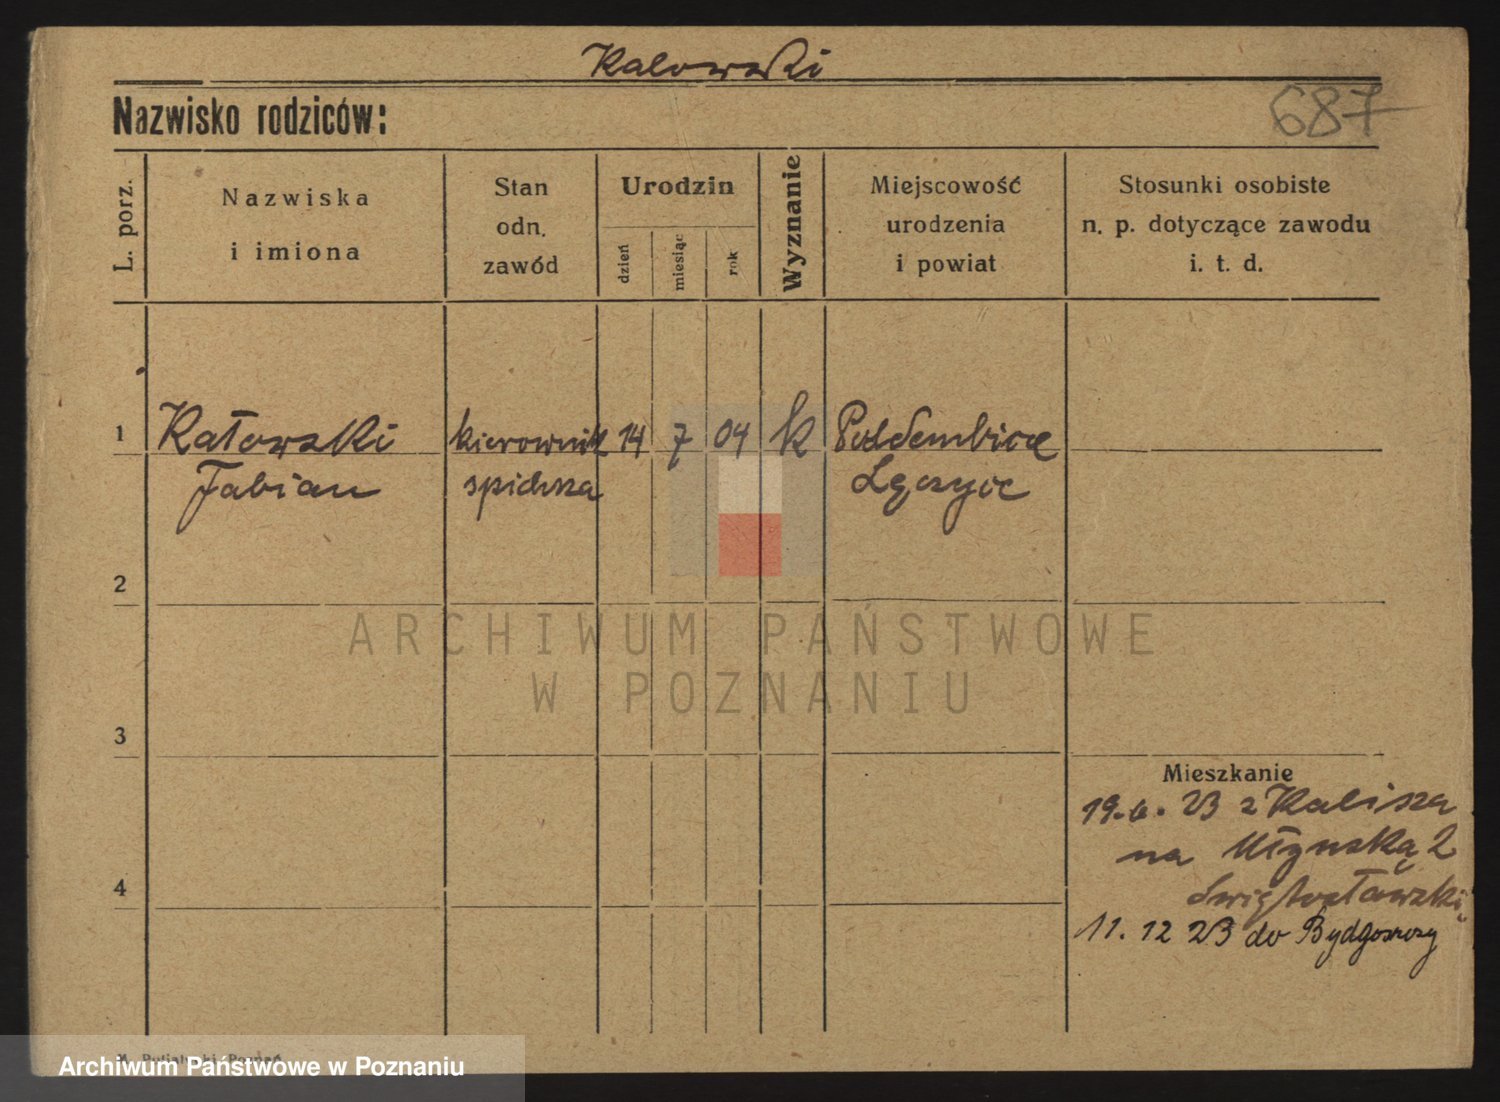 Kałowski
Nazwisko rodziców:
687
L. porz.
Nazwiska
i imiona
Stan
odn.
zawód
Urodzin
dzień
miesiąc
rok
Wyznanie
Miejscowość
urodzenia
i powiat
Stosunki osobiste
n. p. dotyczące zawodu
i. t. d.
1 Kałowski kierownik 14 7 04 k Poddembice
Fabian Łęczyce
2
3
4
Mieszkanie
19.6.23 z Kalisza
na Młynską 2
11.12 23 do Bydgoszczy
ARCHIWUM PAŃSTWOWE
W POZNANIU
Archiwum Państwowe w Poznaniu